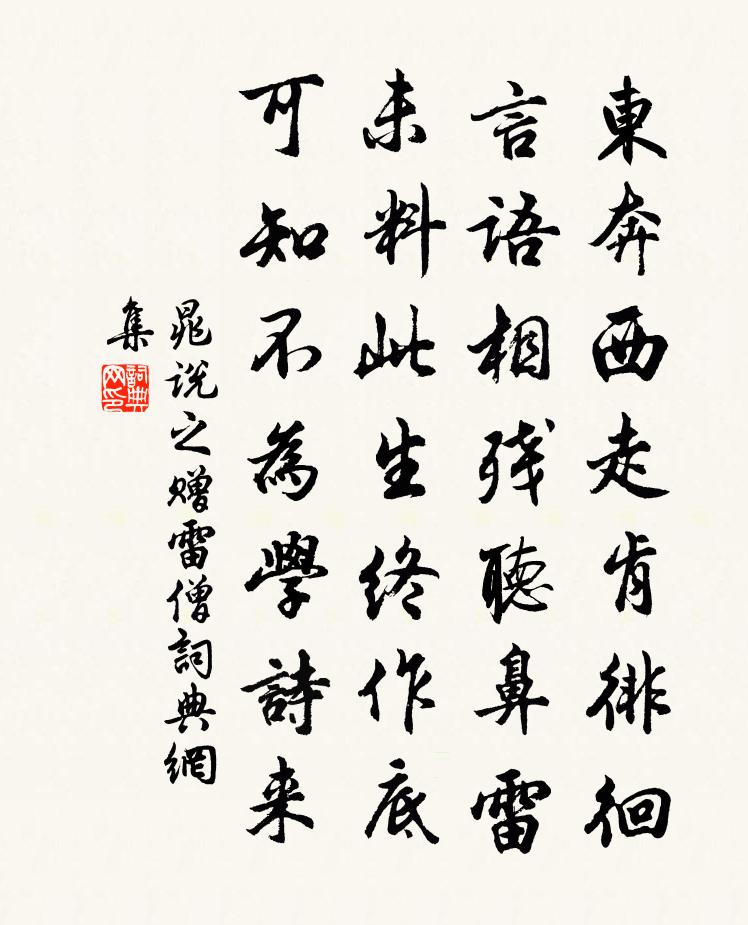 東奔西走肯徘徊
言語相殘聽鼻雷
未料此生終作底
可知不為學詩来
晁說之贈雷僧詞典網
集
詞典网印